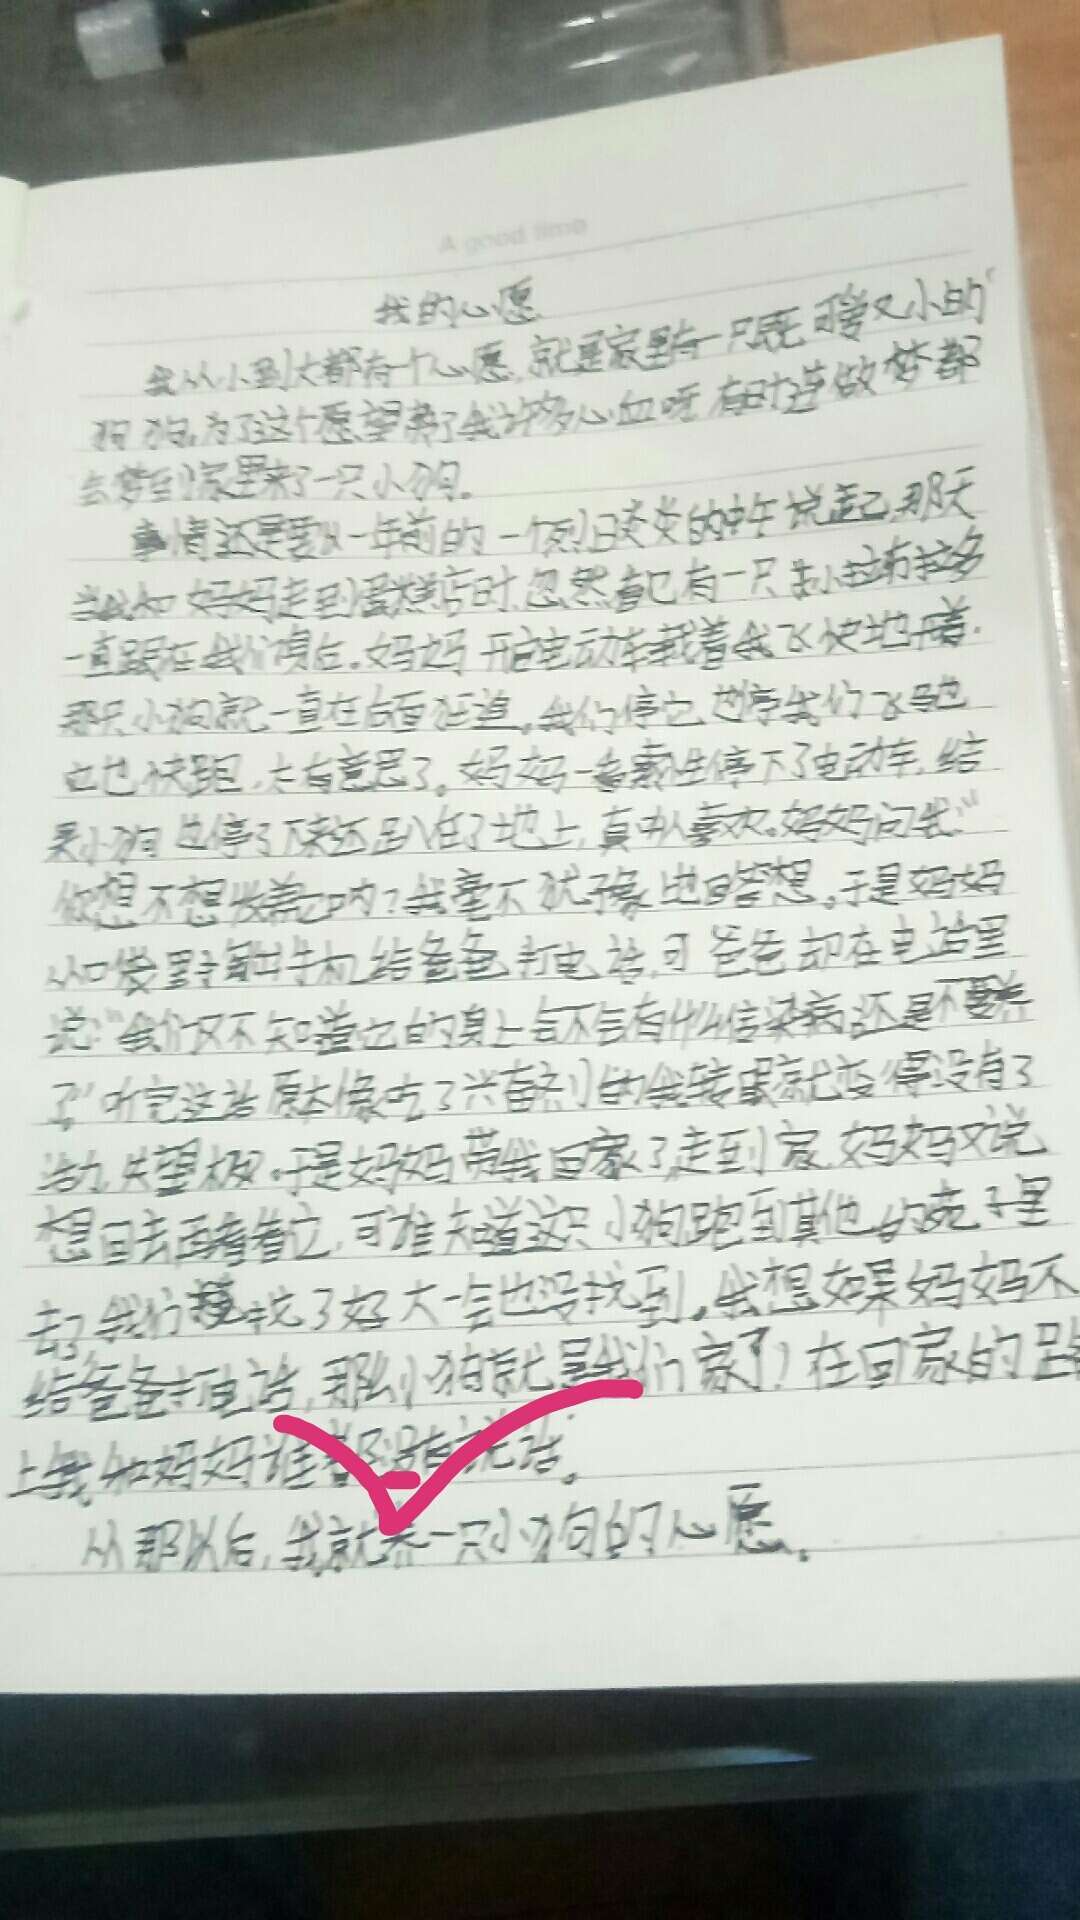 A good time
我的心愿
我从小到大都有一个心愿,就是家里有一只既可爱又小的
狗狗,为了这个愿望费了我许多心血呀,有时连做梦都
会梦到家里来了一只小狗。
事情还是要从一年前的一个烈日炎炎的中午说起,那天
当我和妈妈走到蛋糕店时,忽然看见有一只小拉布拉多
一直跟在我们身后。妈妈开启电动车载着我飞快地开着,
那只小狗就一直在后面狂追。我们停它也停我们飞跑
它也快跑,太有意思了。妈妈一看赶停下了电动车,结
果小狗也停了下来还趴在了地上,真叫人喜欢。妈妈问我:“
你想不想收养它呐?我毫不犹豫地回答想。于是妈妈
从口袋里手机给爸爸打电话,可爸爸却在电话里
说:“我们又不知道它的身上会不会有什么传染病,还是不要养
了”听完这话原本像吃了兴奋剂的我转眼就变得没有了
活力,失望极了。于是妈妈带我回家了,走到家,妈妈又说
想回去再看看它,可谁知道这只小狗跑到其他的院子里
去了我们找了好大一会也没找到。我想如果妈妈不
给爸爸打电话,那么小狗就是我们家了!在回家的路
上我和妈妈谁都没有说话。
从那以后,我就养一只小狗的心愿。